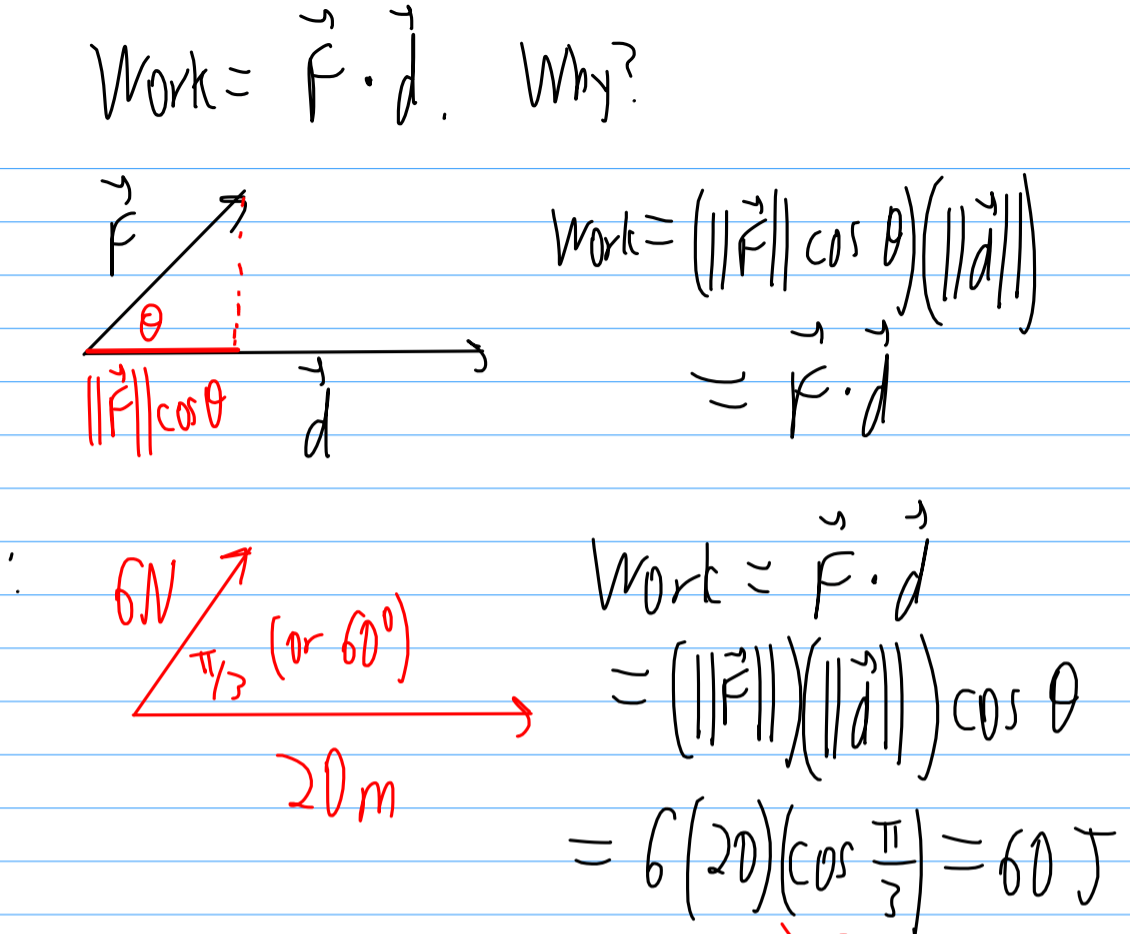 Work = F⃗ · d⃗. Why?
F⃗
θ
‖F⃗‖cosθ
d⃗
Work = (‖F⃗‖ cos θ)(‖d⃗‖)
= F⃗ · d⃗
:
6N
π/3 (or 60°)
20m
Work = F⃗ · d⃗
= (‖F⃗‖)(‖d⃗‖) cos θ
= 6(20)(cos π/3) = 60 J